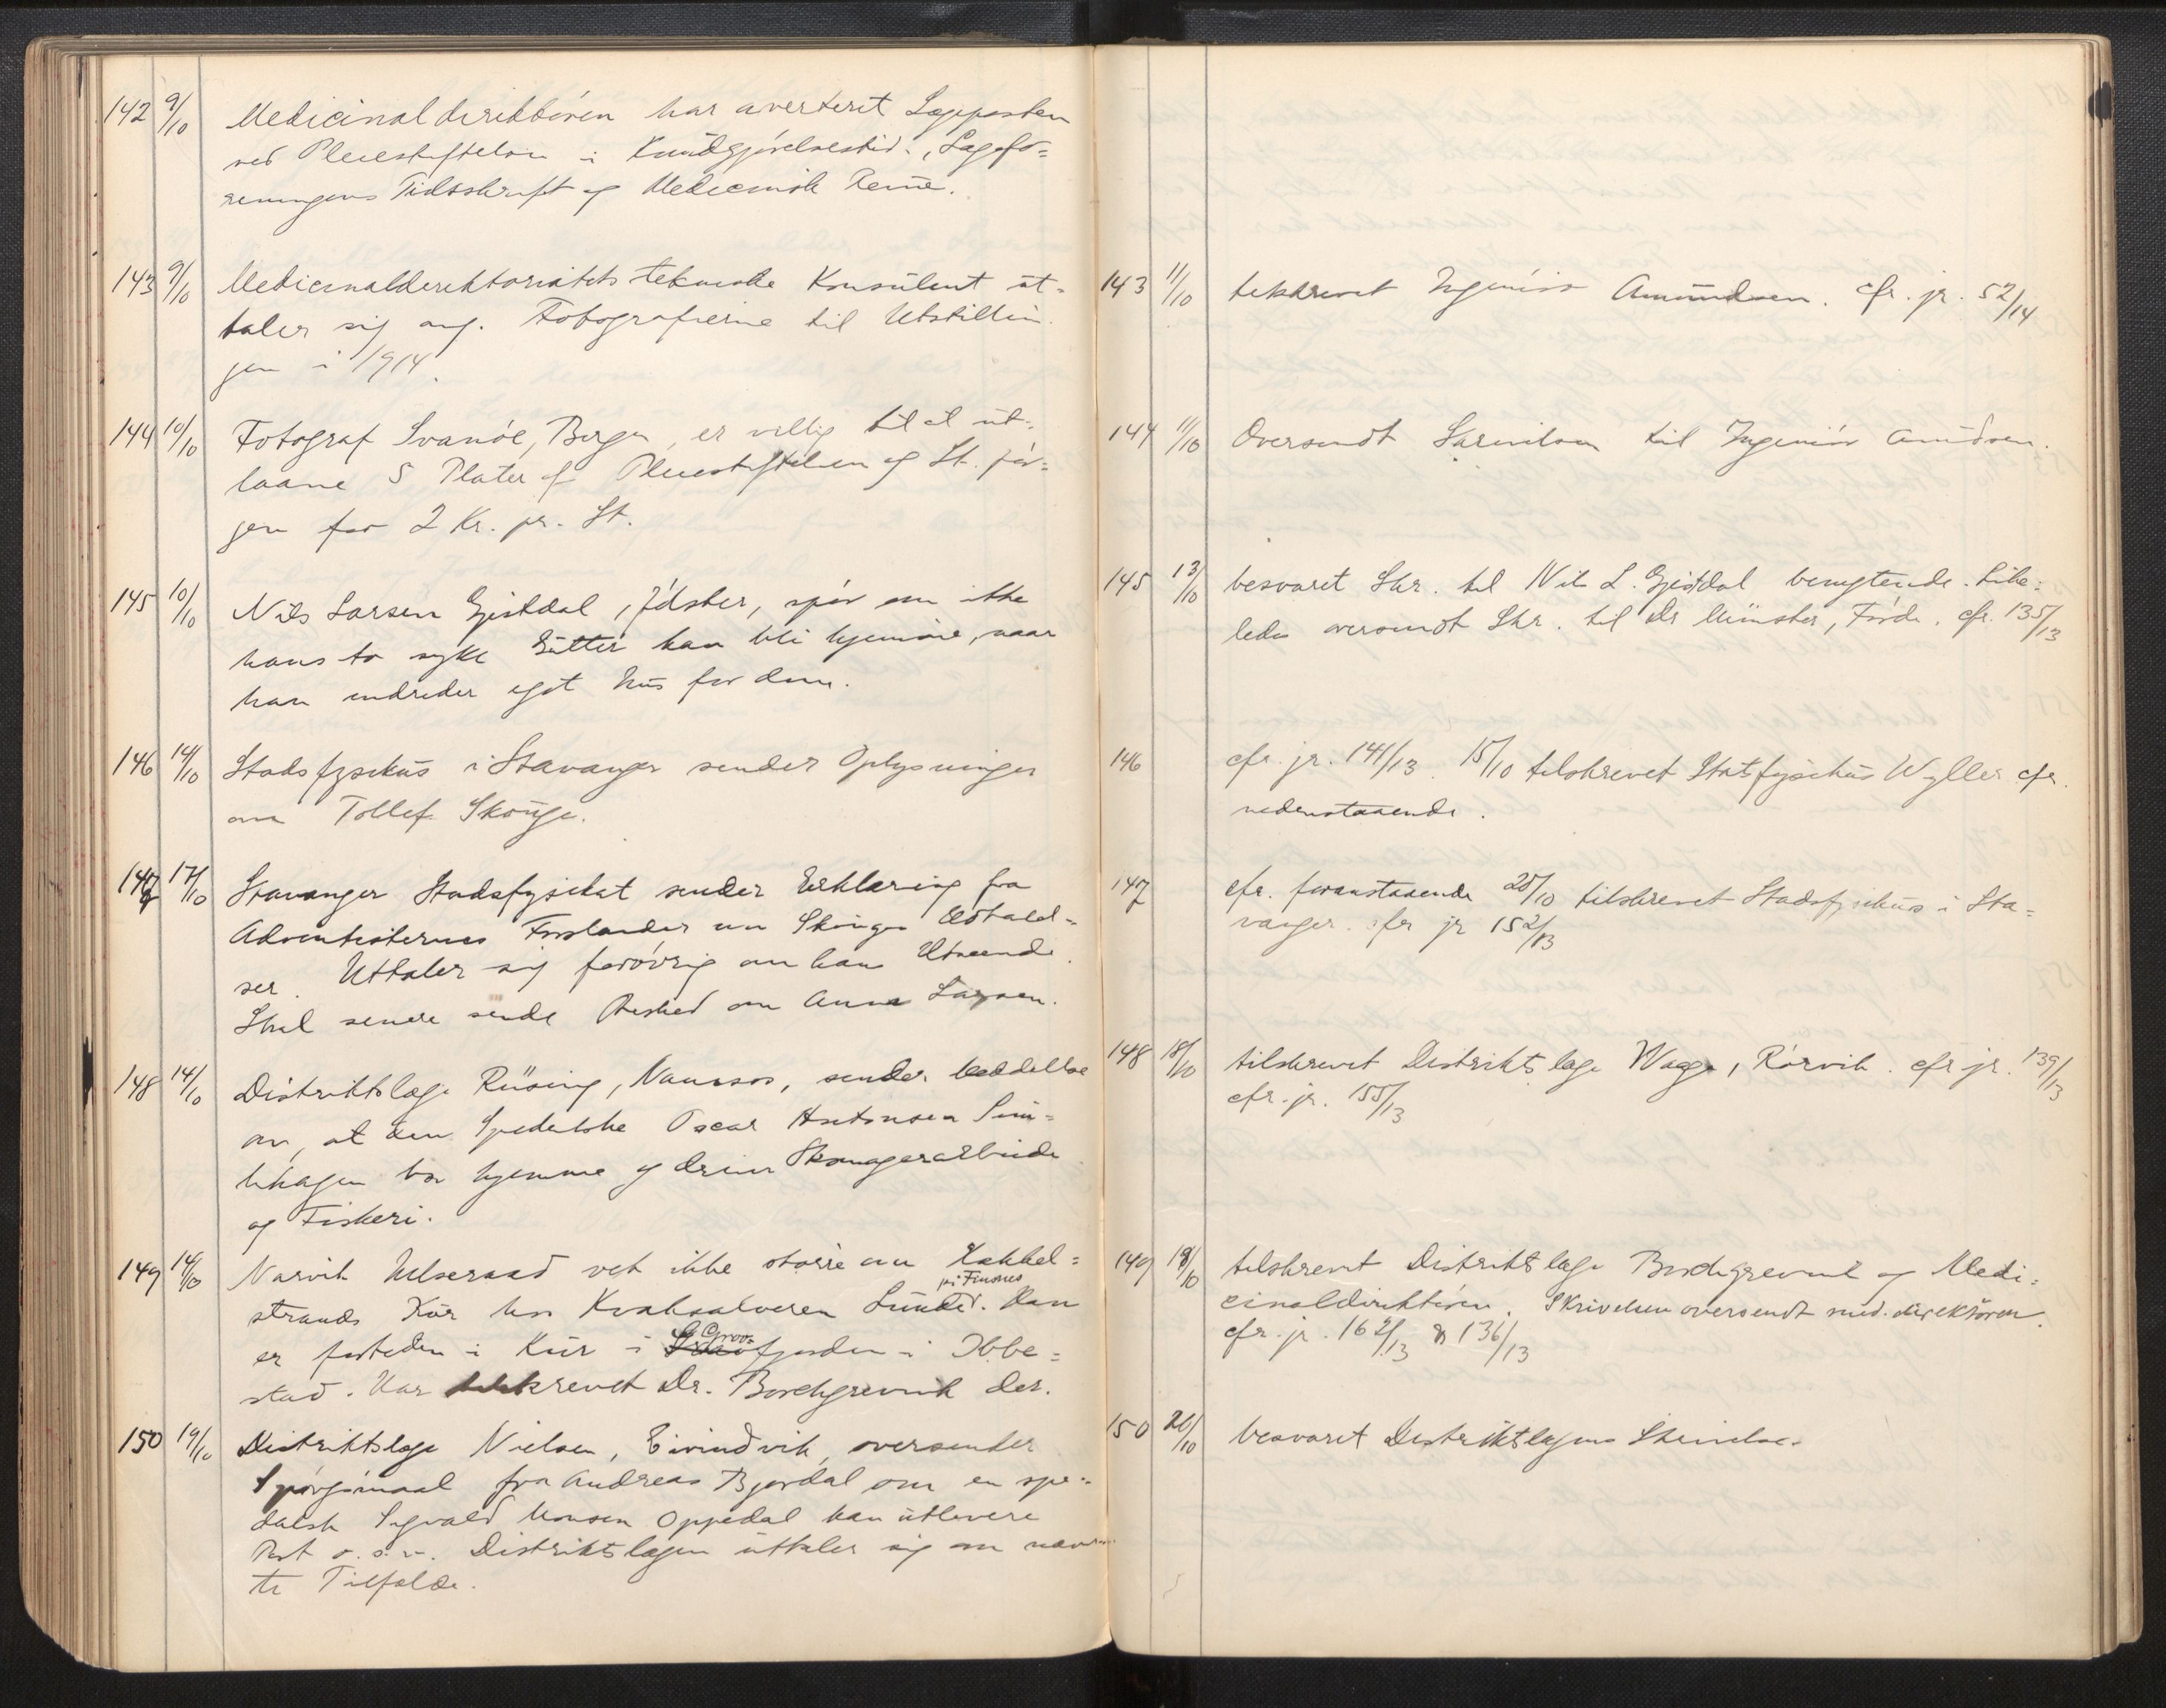 142 9/10 Medicinaldirektören har averteret Lægeposten
ved Pleiestiftelsen i Kundgjörelsestid., Lægefo=
reningens Tidsskrift og Medicinsk Revue.
143 9/10 Medicinaldirektoriatets tekniske Konsulent ut=
taler sig ang. Fotografierne til Utstillin
gen i 1914.
144 10/10 Fotograf Svanöe, Bergen, er villig til at ut=
laane 5 Plater af Pleiestiftelsen og St. Jör=
gen for 2 Kr. pr. St.
145 10/10 Nils Larsen Gjesdal, Jölster, spör om ikke
hans to syke Gutter kan bli hjemme, naar
han indreder eget Hus for dem.
146 14/10 Stadsfysikus i Stavanger sender Oplysninger
om Tollef Skouge.
147 17/10 Stavanger Stadsfysikat sender Erklæring fra
Adventisternes Forstander om Skouges Utstaael=
ser. Uttaler sig forövrig om hans Utseende.
Skal senere sende Besked om Anna Larsen.
148 14/10 Distriktslæge Rüsing, Namsos, sender Meddelelse
om, at den Spedalske Oscar Antonsen Sme=
hhagen bor hjemme og driver Skomagerarbeide
og Fiskeri.
149 14/10 Narvik Helseraad vet ikke större om Kakkel=
strands Kur hos Kvaksalveren Lunde. Han
på Finsnes
er forteden i Kur i Groo=
fjorden i Ibbe=
stad. Har tilskrevet Dr. Borchgrevink der.
150 19/10 Distriktslæge Nielsen, Eivindvik, oversender
Spörgsmaal fra Andreas Bjordal om en spe=
dalsk Sigvald Monsen Oppedal kan utlevere
Post o.s.v. Distriktslægen uttaler sig om nævn
te Tilfælde.
143 11/10 tilskrevet Ingeniör Amundsen. cfr. jr. 52/14
144 11/10 Oversendt Skrivelsen til Ingeniör Amundsen.
145 13/10 besvaret Skr. til Nils L. Gjesdal benegtende. Like=
ledes oversendt Skr. til Dr Münster, Förde. cfr. 135/13
146 cfr. jr. 141/13. 15/10 tilskrevet Statsfysikus Wyller cfr.
nedenstaaende.
147 cfr. foranstaaende 20/10 tilskrevet Stadsfysikus i Sta=
vanger. cfr jr 152/13
148 18/10 tilskrevet Distriktslæge Waage, Rörvik. cfr jr. 139/13
cfr. jr. 155/13
149 18/10 tilskrevet Distriktslæge Borchgrevink og Medi=
cinaldirektören. Skrivelsen oversendt med. direktören.
cfr. jr. 162/13 & 136/13
150 20/10 besvaret Distriktslægens Skrivelse.